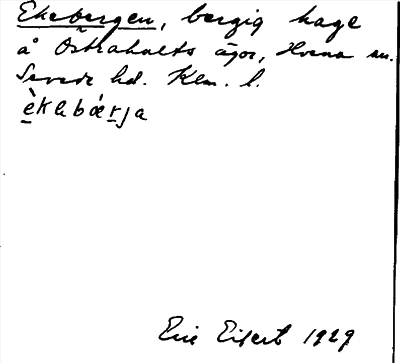 Ekebergen, bergig hage
å Östrahults ägor, Hvena sn.
Sevede hd. Klm. l.
èkabǽrja
Eric Eifert 1929